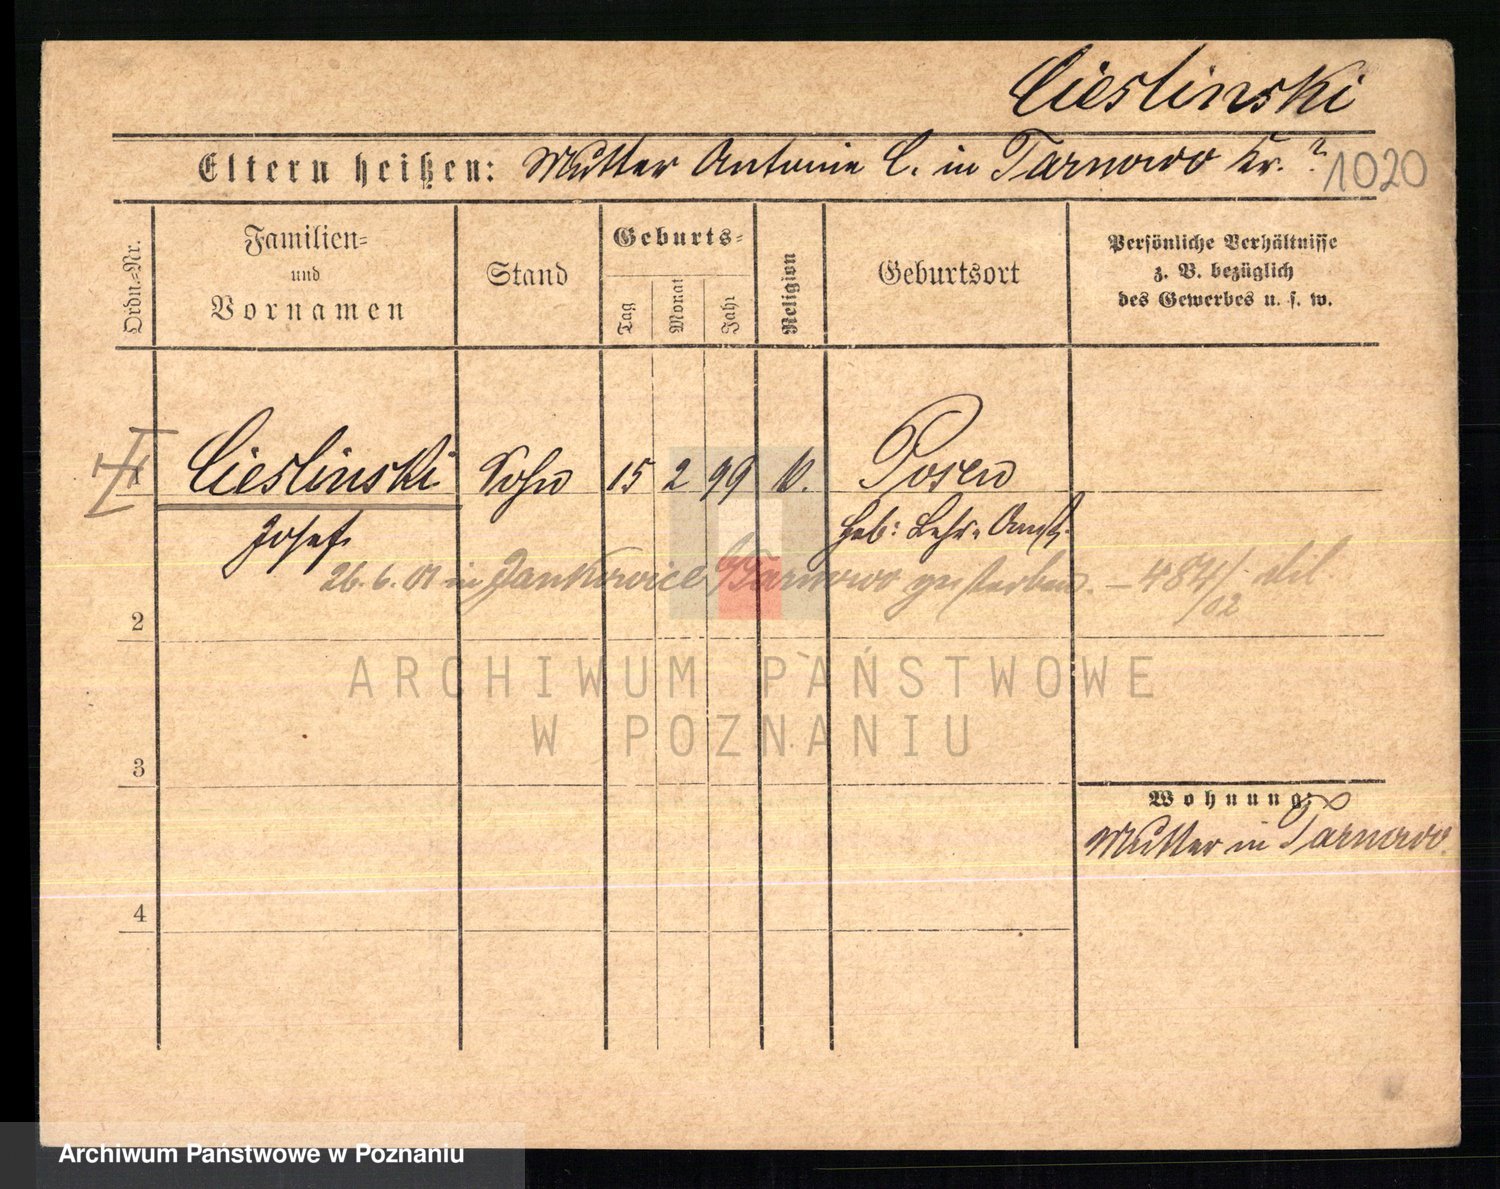 Cieslinski
Eltern heißen: Mutter Antonie C. in Tarnowo Kr. ?
1020
Ordn.-Nr.
Familien-
und
Vornamen
Stand
Geburts-
Tag
Monat
Jahr
Religion
Geburtsort
Persönliche Verhältnisse
z. B. bezüglich
des Gewerbes u. s. w.
Cieslinski Sohn 15 2 99 k. Posen
Josef Heb: Lehr-Anst.
26. 6. 01 in Jankowice Tarnowo gestorben. – 484/02
2
ARCHIWUM PAŃSTWOWE
W POZNANIU
3
Wohnung:
Mutter in Tarnowo.
4
Archiwum Państwowe w Poznaniu